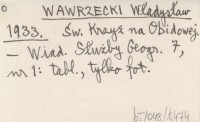 WAWRZECKI Władysław
1933. Św. Krzyż na Obidowej.
— Wiad. Służby Geogr. 7,
nr 1: tabl., tylko fot.